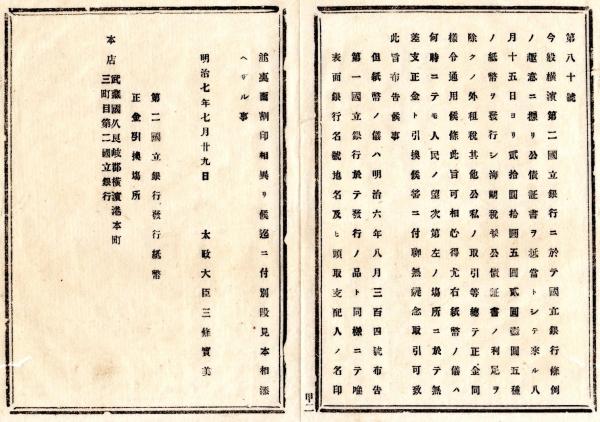 第八十號
今般横濱第二國立銀行ニ於テ國立銀行條例
ノ趣意ニ據リ公債証書ヲ抵當トシテ來ル八
月十五日ヨリ貳拾圓拾圓五圓貳圓壹圓五種
ノ紙幣ヲ發行シ海關税並公債証書ノ利足ヲ
除クノ外租税其他公私ノ取引等總テ正金同
樣分通用候條此旨可相心得尤右紙幣ノ儀ハ
何時ニテモ人民ノ望次第左ノ塲所ニ於テ無
差支正金ト引換候筈ニ付聊無疑念取引可致
此旨布告候事
但紙幣ノ儀ハ明治六年八月三百四號布告
第一國立銀行於テ發行ノ品ト同樣ニテ唯
表面銀行名號地名及ヒ頭取支配人ノ名印
並裏面割印相異リ候迄ニ付別段見本相添
ヘザル事
明治七年七月廿九日 太政大臣三條實美
第二國立銀行發行紙幣
正金引換塲所
本店 武藏國久良岐郡横濱港本町
三町目第二國立銀行
甲一